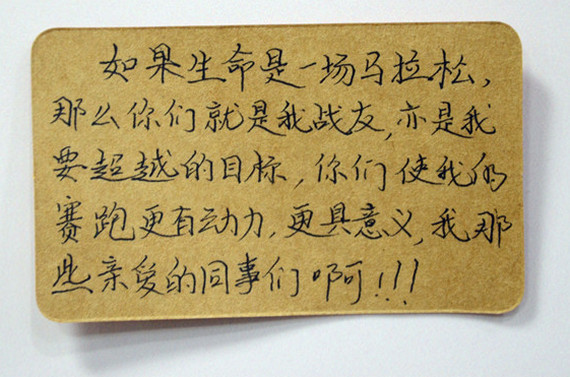 如果生命是一场马拉松，
那么你们就是我战友，亦是我
要超越的目标，你们使我的
赛跑更有动力，更具意义，我那
些亲爱的同事们啊！！！